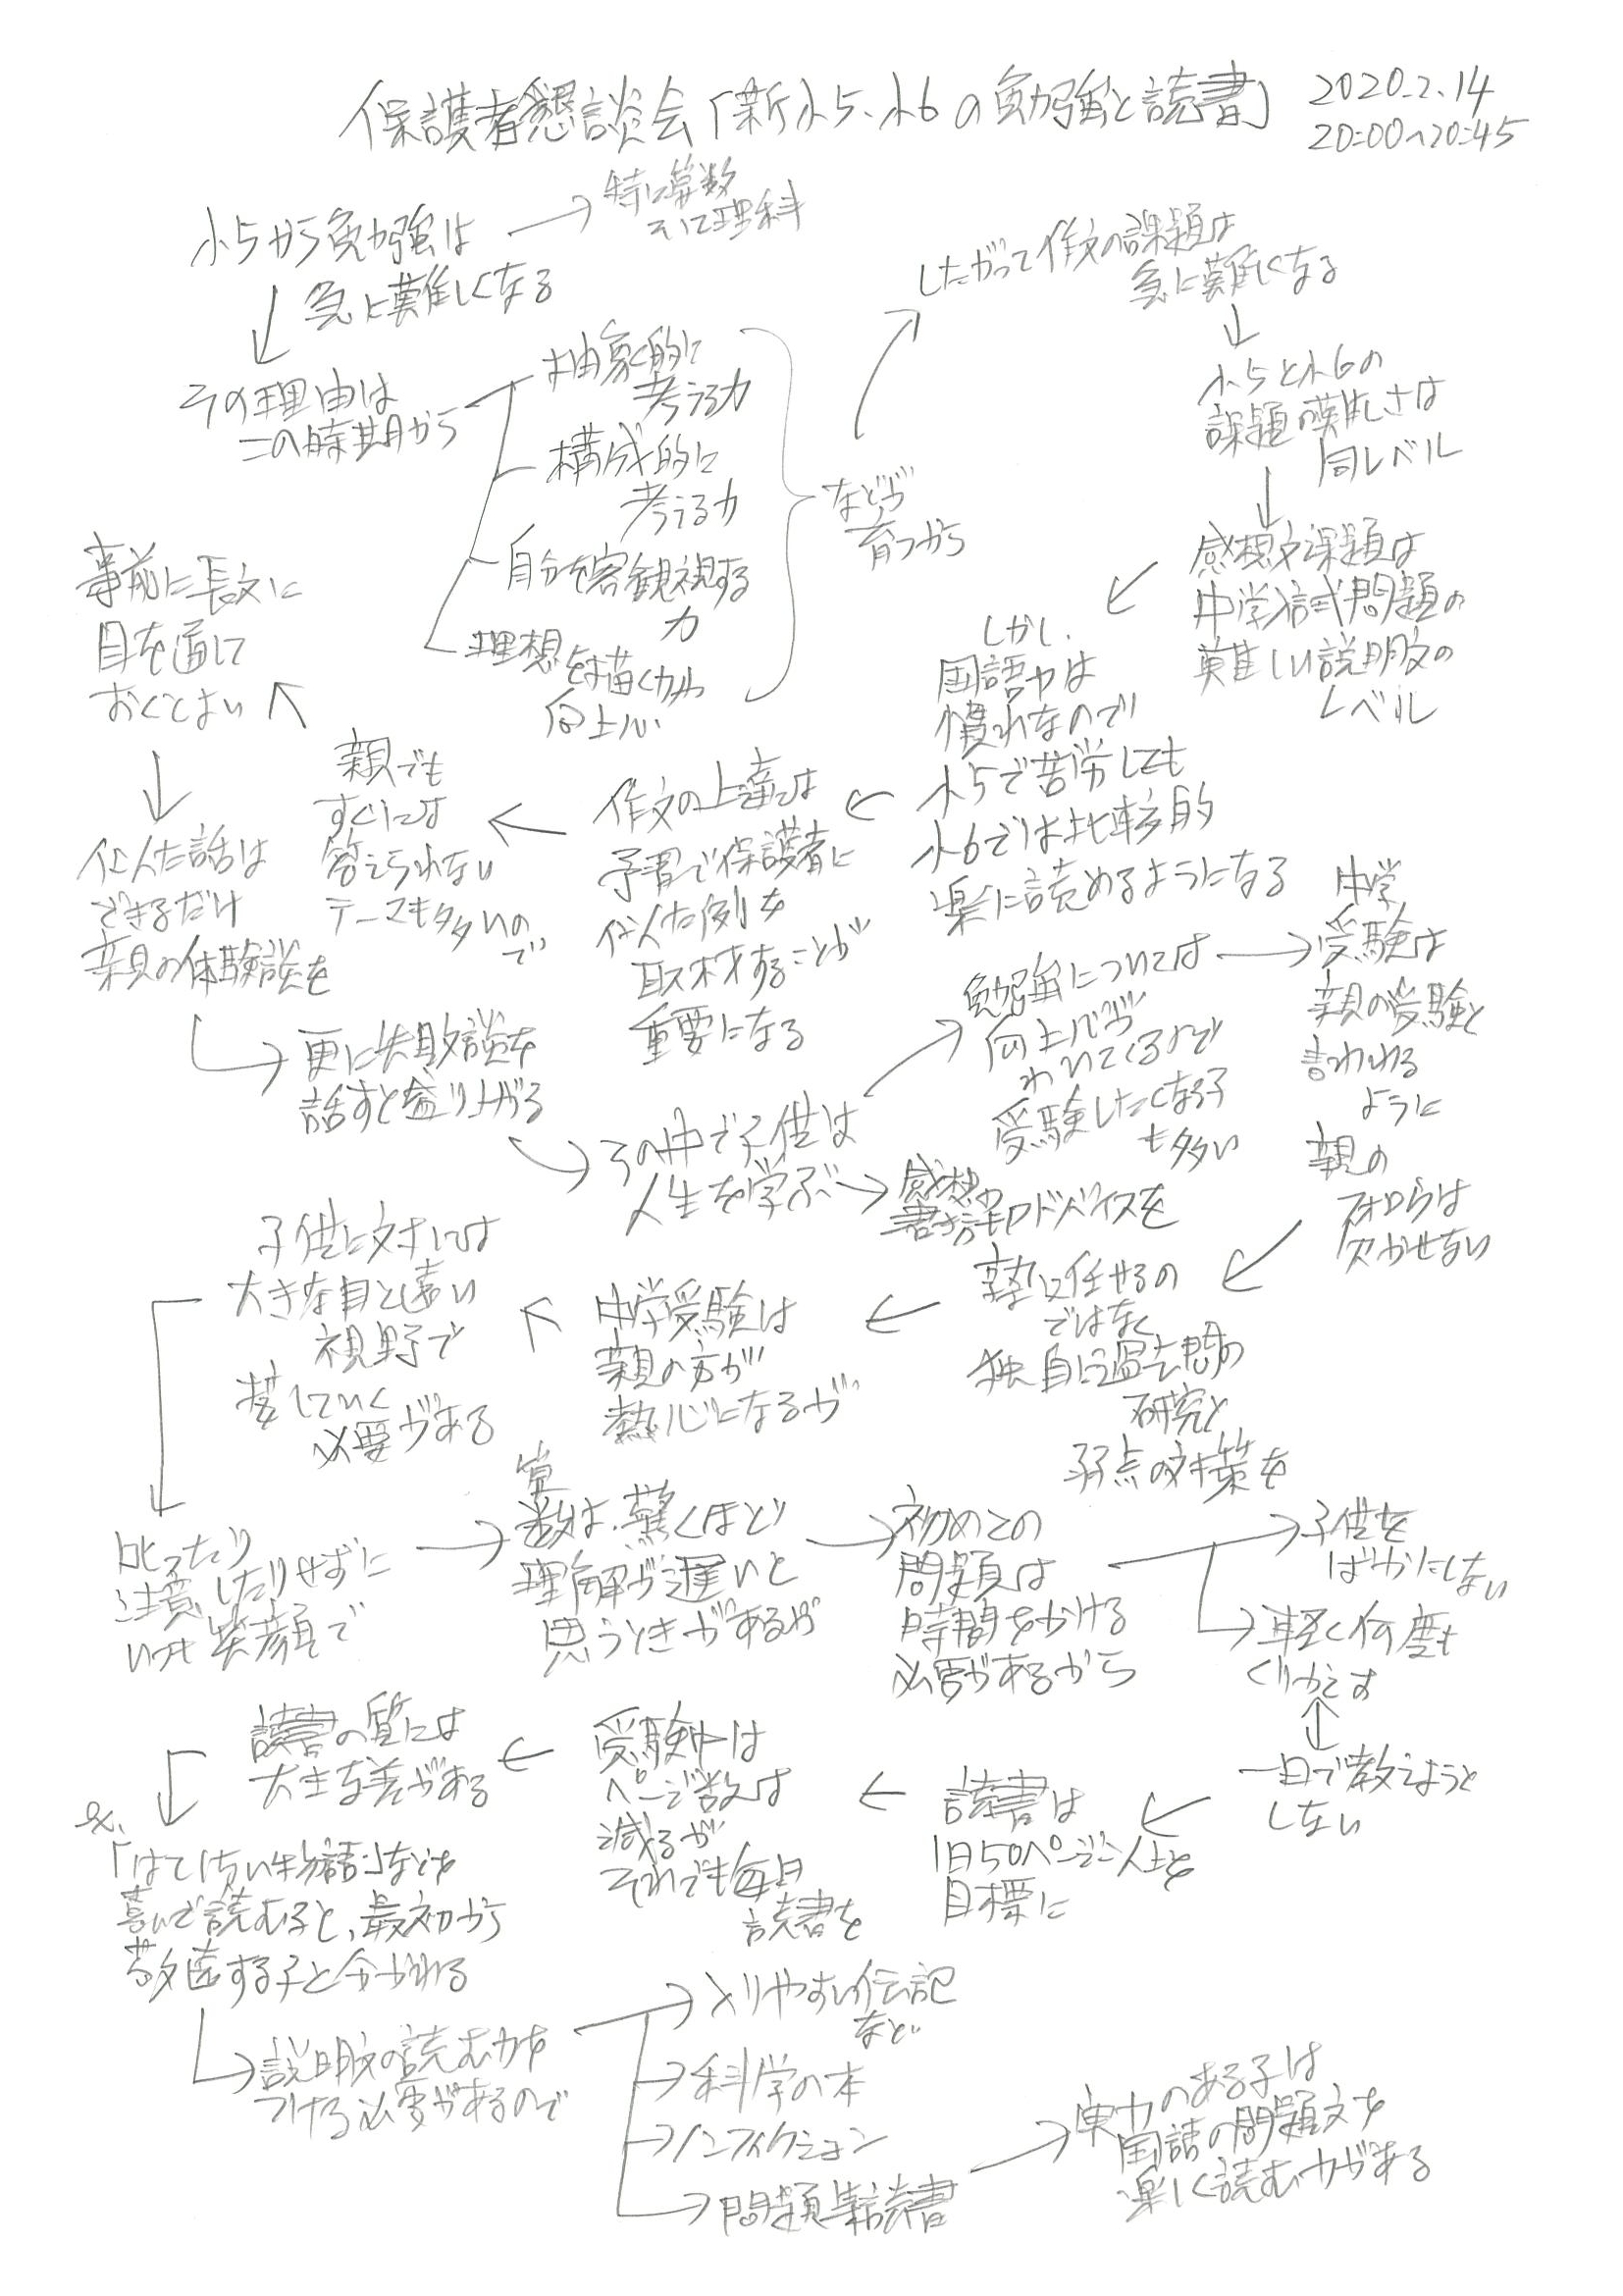 保護者懇談会「新小5、小6の勉強と読書」
2020.2.14
20:00~20:45
小5から勉強は
急に難しくなる
特に算数
そして理科
その理由は
この時期から
抽象的に
考える力
構成的に
考える力
自分を客観視する
力
理想を描く力や
向上心
などが
育つから
したがって作文の課題は
急に難しくなる
小5と小6の
課題の難しさは
同レベル
感想文課題は
中学入試問題の
難しい説明文の
レベル
しかし、
国語力は
慣れなので
小5で苦労しても
小6では比較的
楽に読めるようになる
作文の上達には
予習で保護者に
似た例を
取材することが
重要になる
親でも
すぐには
答えられない
テーマも多いの
で
事前に長文に
目を通して
おくとよい
似た話は
できるだけ
親の体験談を
更に失敗談を
話すと盛り上がる
その中で子供は
人生を学ぶ
感想や
書き方アドバイスを
勉強については
向上心が
わいてくるので
受験したくなる子
も多い
中学
受験は
親の受験と
言われる
ように
親の
フォローは
欠かせない
塾に任せるの
ではなく
独自に過去問の
研究と
弱点の対策を
中学受験は
親の方が
熱心になるが
子供に対しては
大きな目と遠い
視野で
接していく
必要がある
叱ったり
注意したりせずに
いつも笑顔で
算
数は、驚くほど
理解が遅いと
思うときがあるが
初めての
問題は
時間をかける
必要があるから
子供を
ばかにしない
軽く何度も
くりかえす
一日で教えようと
しない
読書は
1日50ページ以上を
目標に
受験中は
ページ数は
減るが
それでも毎日
読書を
読書の質には
大きな差がある
ex.
「はてしない物語」などを
喜んで読む子と、最初から
敬遠する子と分かれる
説明文の読む力を
つける必要があるので
入りやすい伝記
など
科学の本
ノンフィクション
問題集読書
実力のある子は
国語の問題文を
楽しく読む力がある